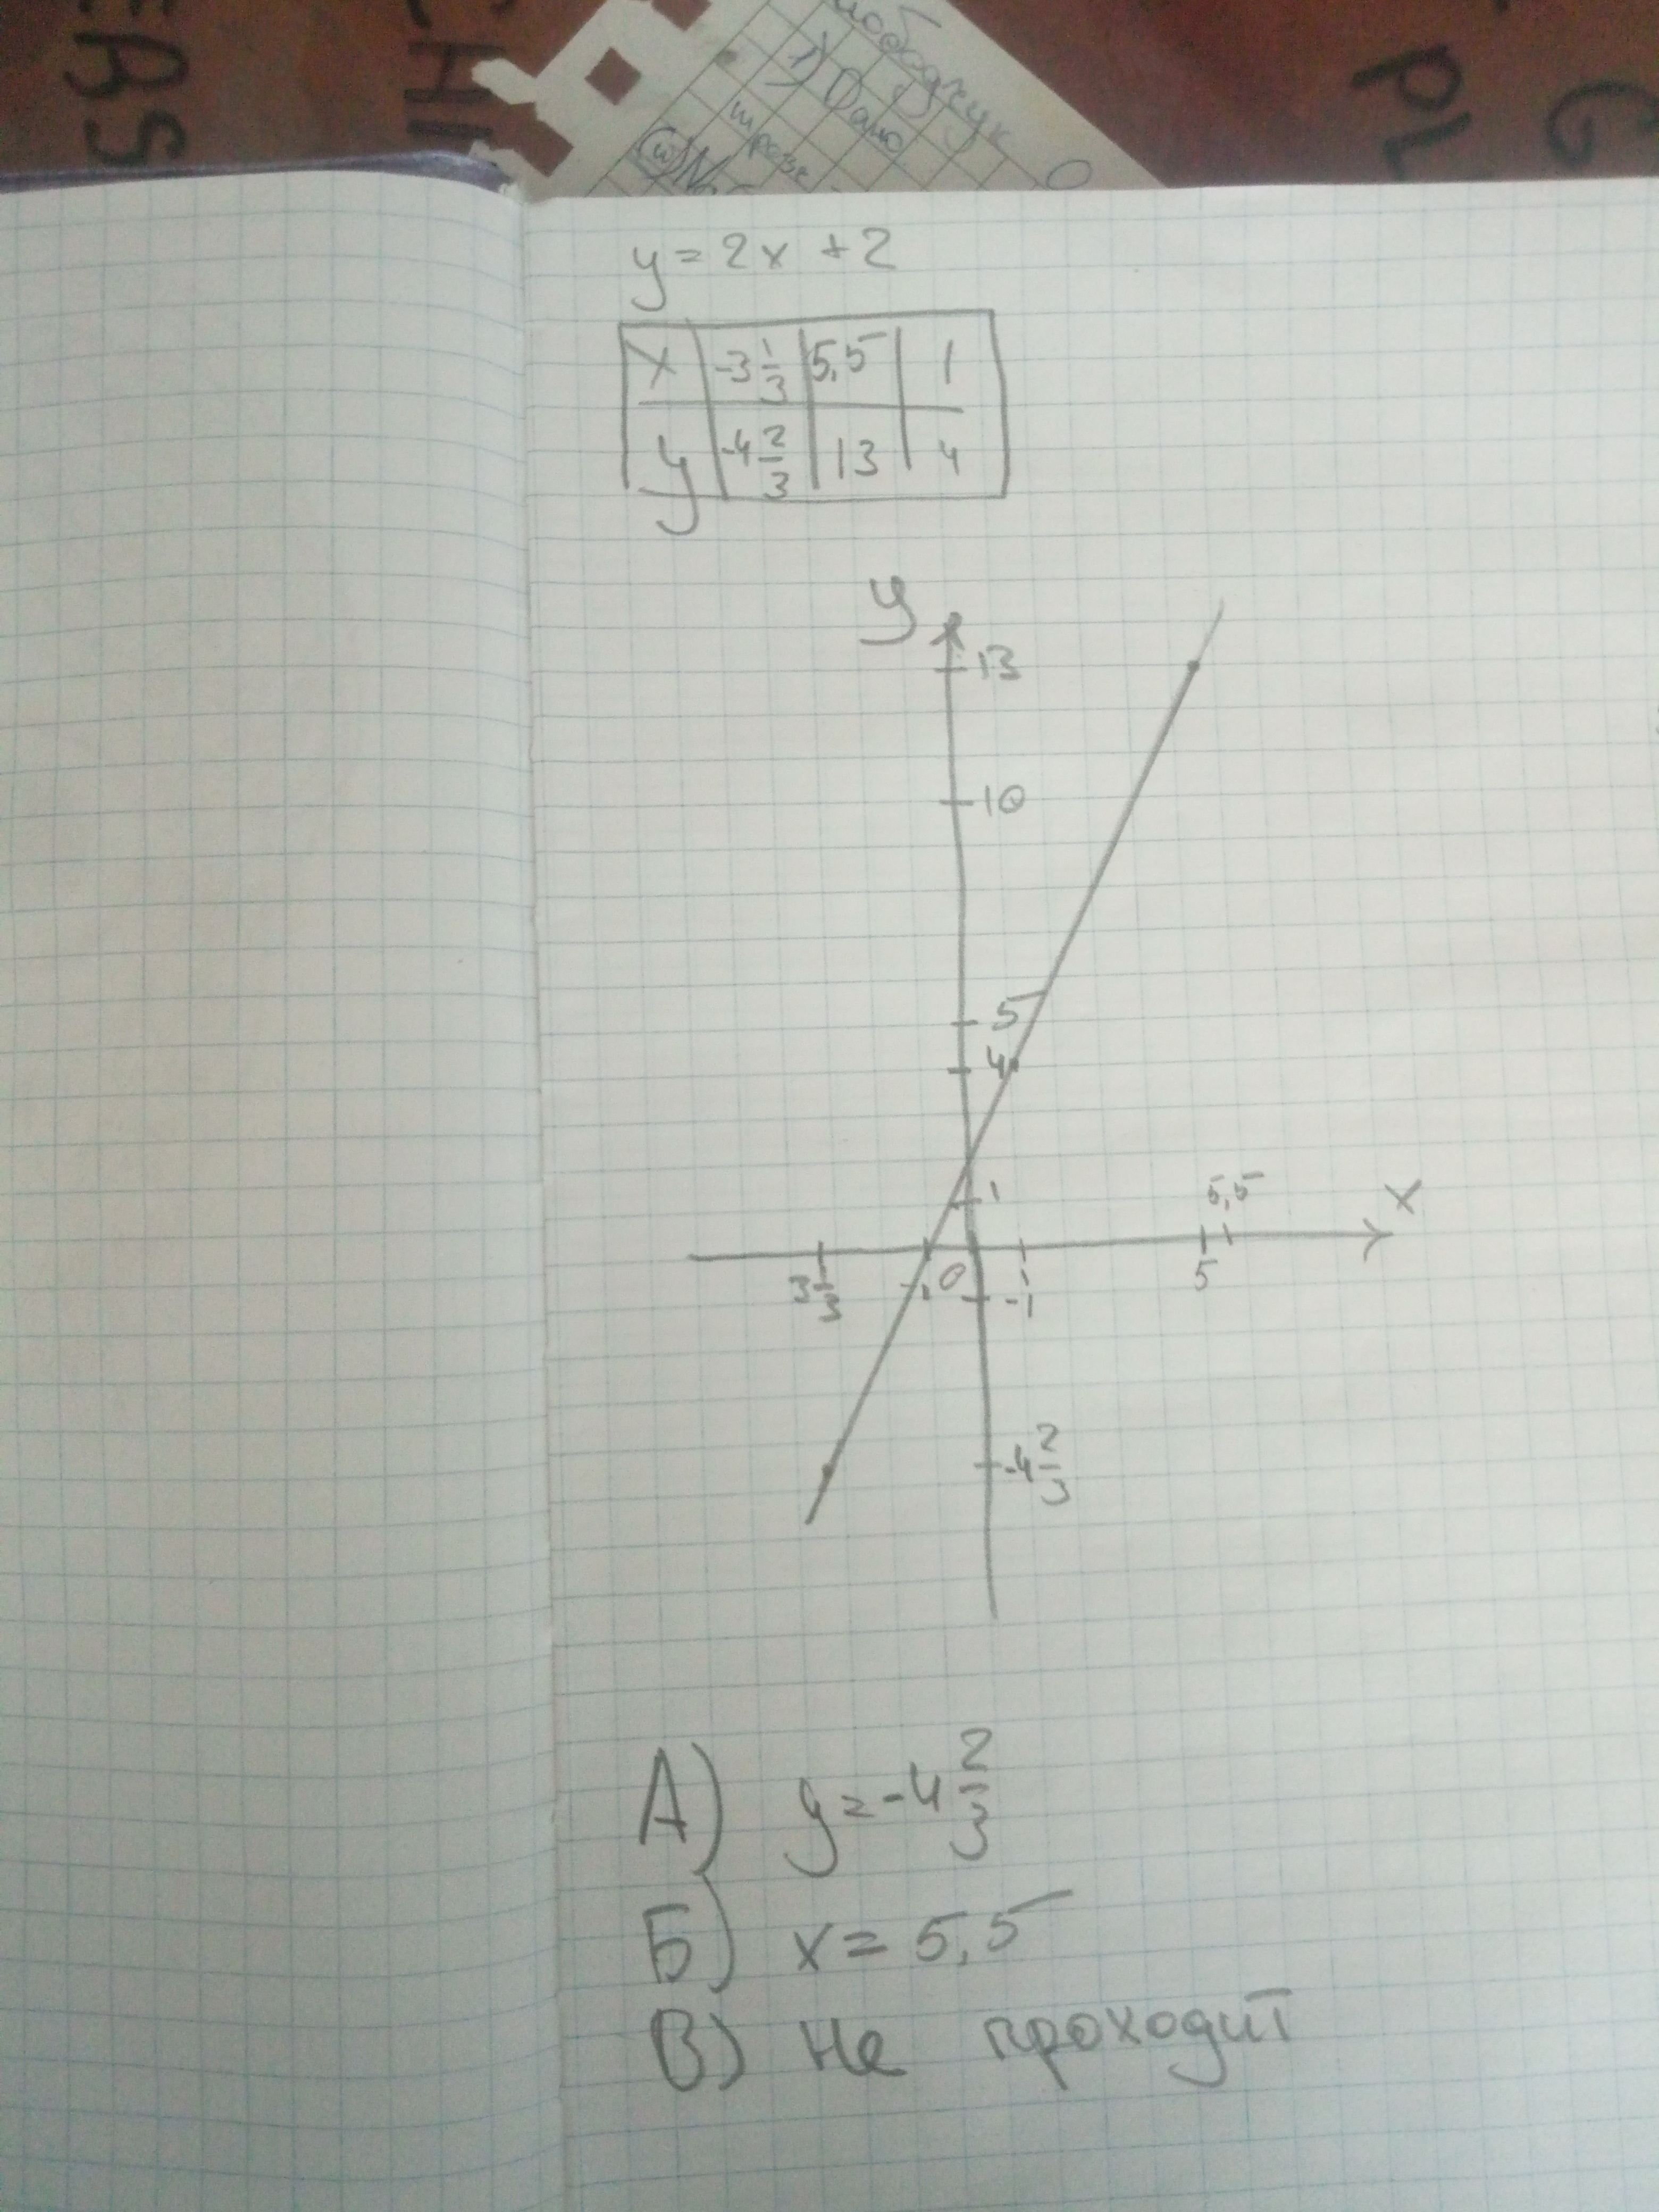 EAS
HI
PL
G
1) Дано
y = 2x + 2
x -3 1/3 5,5 1
y -4 2/3 13 4
y
13
10
5
4
1
5,5
x
3 1/3
-1
0
-1
1
5
-4 2/3
А) y = -4 2/3
Б) x = 5,5
В) не проходит